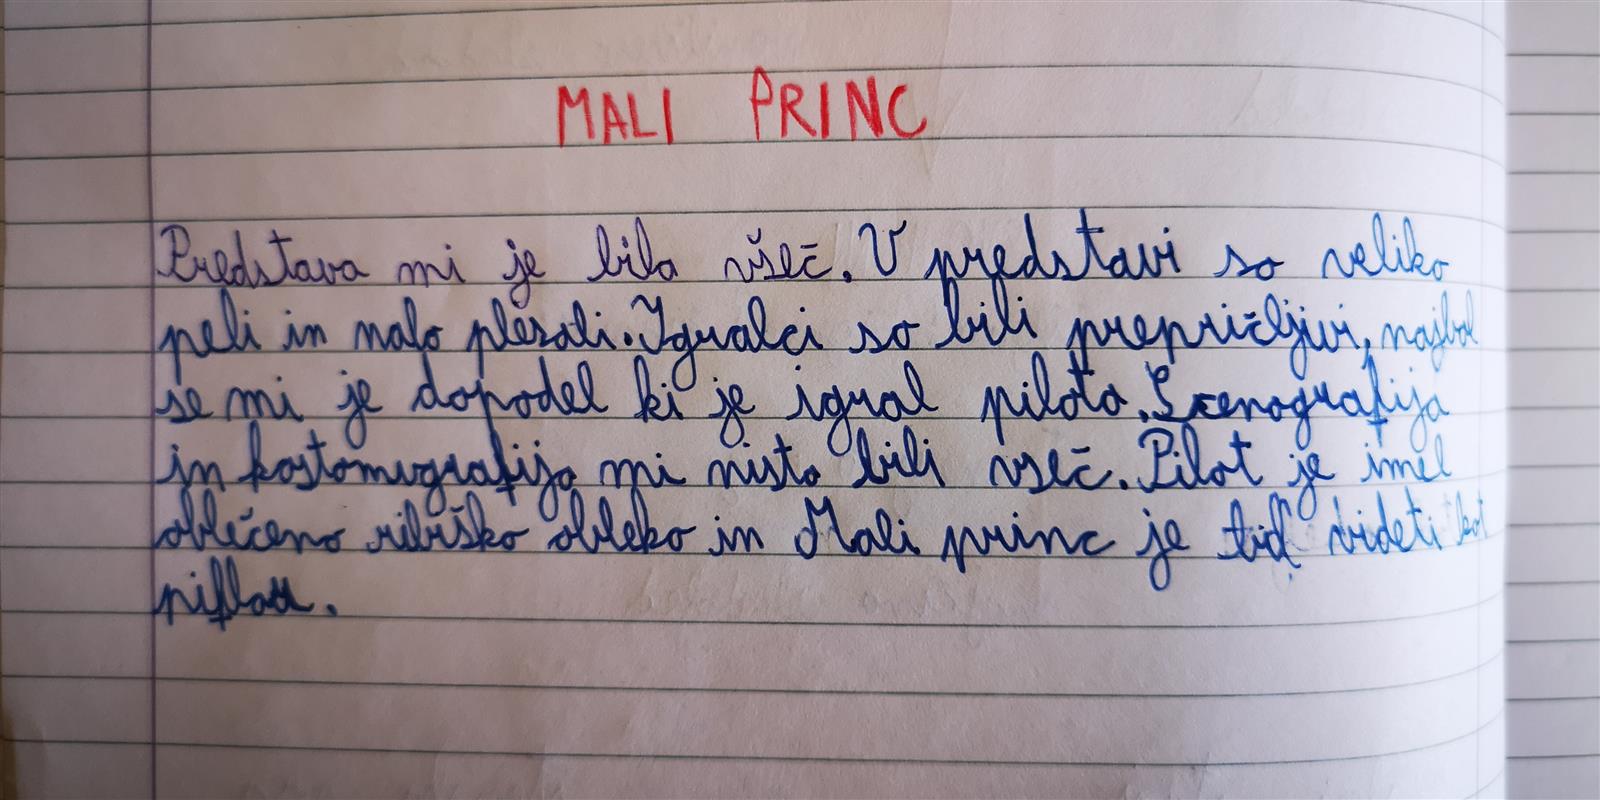 MALI PRINC
Predstava mi je bila všeč. V predstavi so veliko
peli in malo plesali. Igralci so bili prepričljivi, najbol
se mi je dopadel ki je igral pilota. Scenografija
in kostomugrafija mi nista bili vseč. Pilot je imel
oblečeno ribiško obleko in Mali princ je tud videti kot